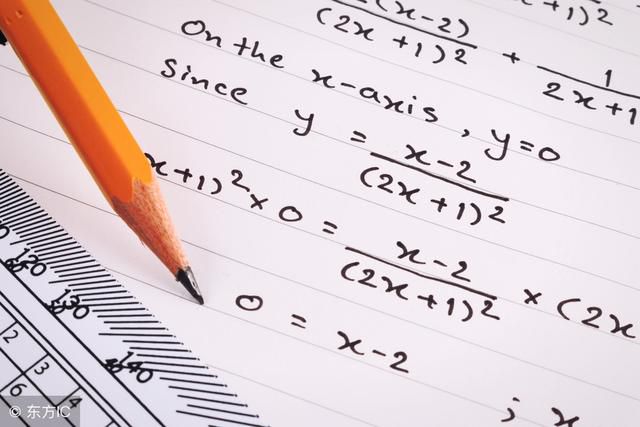 (x-2)
(2x+1)² + 1
2x+1
x+1)²
On the x-axis, y=0
Since y = x-2
(2x+1)²
x+1)² × 0 = x-2
(2x+1)² × (2x
0 = x-2
; x
120
130
140
2 3
6 4
© 东方IC